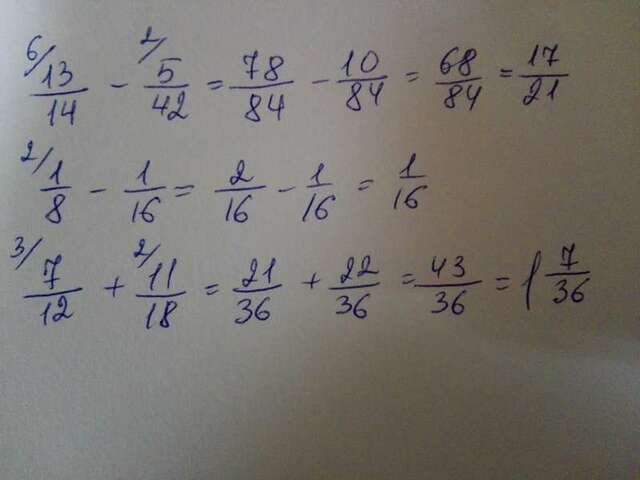 6/ 13/14 - 2/ 5/42 = 78/84 - 10/84 = 68/84 = 17/21
2/ 1/8 - 1/16 = 2/16 - 1/16 = 1/16
3/ 7/12 + 2/ 11/18 = 21/36 + 22/36 = 43/36 = 1 7/36